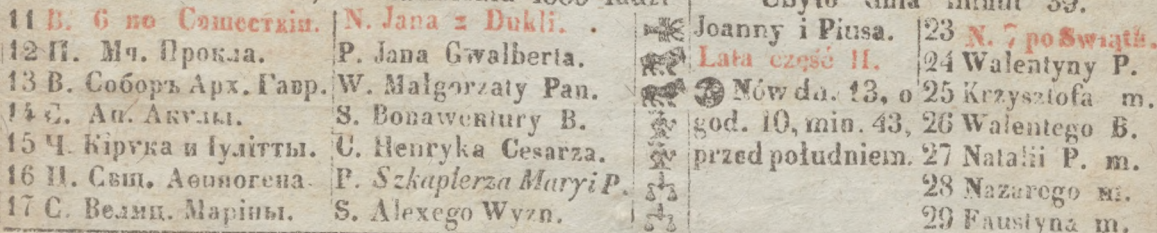 11 В. 6 по Сошествіи. N. Jana z Dukli. Joanny i Piusa. 23 N. 7 po Świątk.
12 П. Мч. Прокла. P. Jana Gwalberta. Lata część II. 24 Walentyny P.
13 В. Соборъ Арх. Гавр. W. Małgorzaty Pan. Nów dn. 13, o 25 Krzysztofa m.
14 С. Ап. Акулы. S. Bonawentury B. god. 10, min. 43, 26 Walentego B.
15 Ч. Кірука и Іулітты. C. Henryka Cesarza. przed południem. 27 Natalii P. m.
16 П. Свщ. Аѳиногена P. Szkaplerza Maryi P. 28 Nazarego m.
17 С. Велмц. Маріны. S. Alexego Wyzn. 29 Faustyna m.